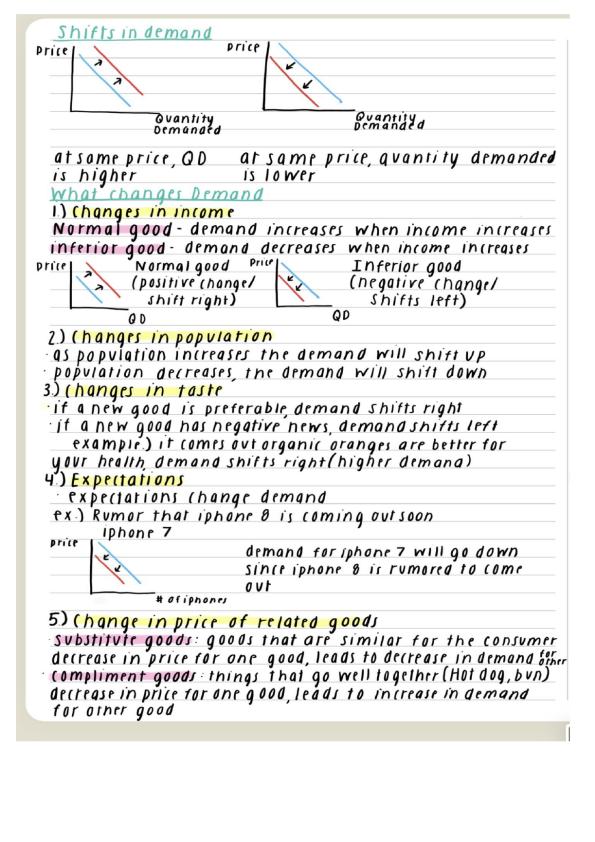 Shifts in demand
Price
Price
Quantity
Demanded
Quantity
Demanded
at same price, QD
is higher
at same price, quantity demanded
is lower
What changes Demand
1.) Changes in income
Normal good - demand increases when income increases
inferior good - demand decreases when income increases
Price
Normal good
(positive change/
shift right)
QD
Price
Inferior good
(negative change/
shifts left)
QD
2.) Changes in population
· as population increases the demand will shift up
· population decreases, the demand will shift down
3.) Changes in taste
· if a new good is preferable, demand shifts right
· if a new good has negative news, demand shifts left
example.) it comes out organic oranges are better for
your health, demand shifts right (higher demand)
4.) Expectations
· expectations change demand
ex.) Rumor that iphone 8 is coming out soon
iphone 7
price
# of iphones
demand for iphone 7 will go down
since iphone 8 is rumored to come
out
5) Change in price of related goods
· substitute goods: goods that are similar for the consumer
decrease in price for one good, leads to decrease in demand for other
· compliment goods: things that go well together (Hot dog, bun)
decrease in price for one good, leads to increase in demand
for other good